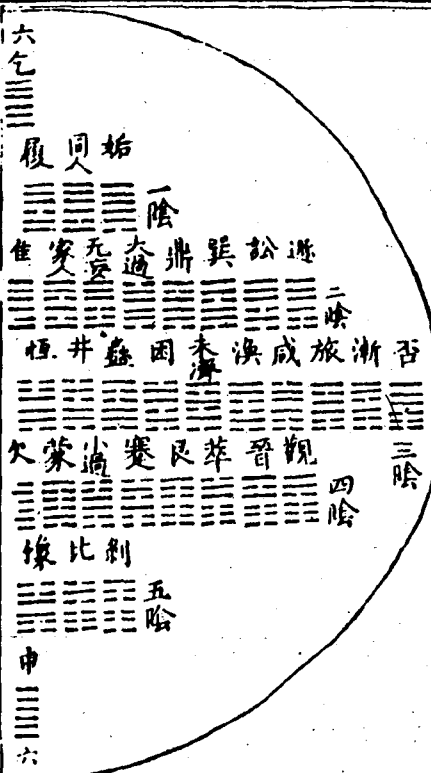 六
乞
履 同人 姤
一陰
隹 家人 无妄 大過 鼎 巽 訟 遯
二陰
恒 井 蠱 困 未濟 渙 咸 旅 漸 否
三陰
欠 蒙 小過 蹇 艮 萃 晉 觀
四陰
比 剝
五陰
申
六